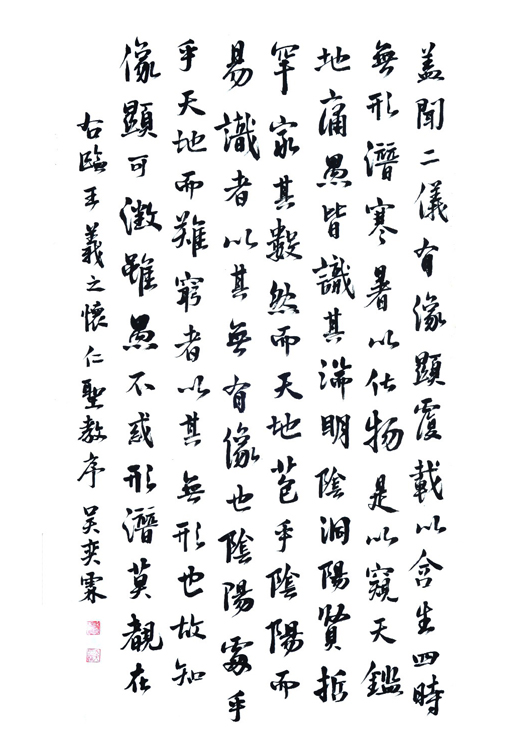 盖聞二儀有像顯覆載以含生四時
無形潛寒暑以化物是以窺天鑑
地庸愚皆識其端明陰洞陽賢哲
罕家其數然而天地苞乎陰陽而
易識者以其無有像也陰陽處乎
乎天地而難窮者以其無形也故知
像顯可徵雖愚不惑形潛莫覩在
右臨王羲之懷仁聖教序 吴奕霖